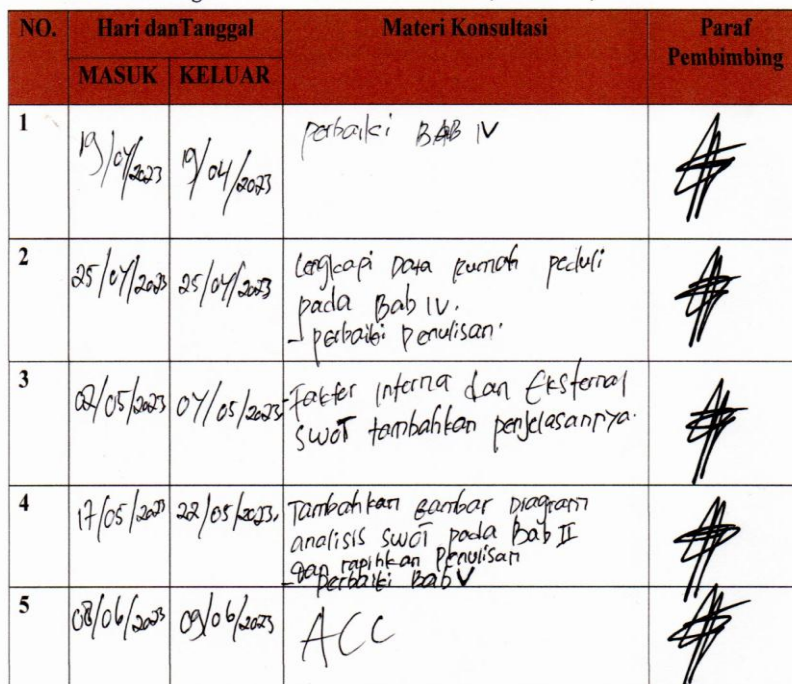 NO. Hari danTanggal Materi Konsultasi Paraf
Pembimbing
MASUK KELUAR
1 19/04/2023 19/04/2023 perbaiki BAB IV
2 25/04/2023 25/04/2023 Lengkapi Data Rumah peduli
pada Bab IV.
- perbaiki penulisan.
3 02/05/2023 04/05/2023 - Faktor Interna dan Eksternal
SWOT tambahkan penjelasannya.
4 17/05/2023 22/05/2023. Tambahkan gambar Diagram
analisis SWOT pada Bab II
dan rapihkan Penulisan
- perbaiki Bab V
5 08/06/2023 09/06/2023 ACC